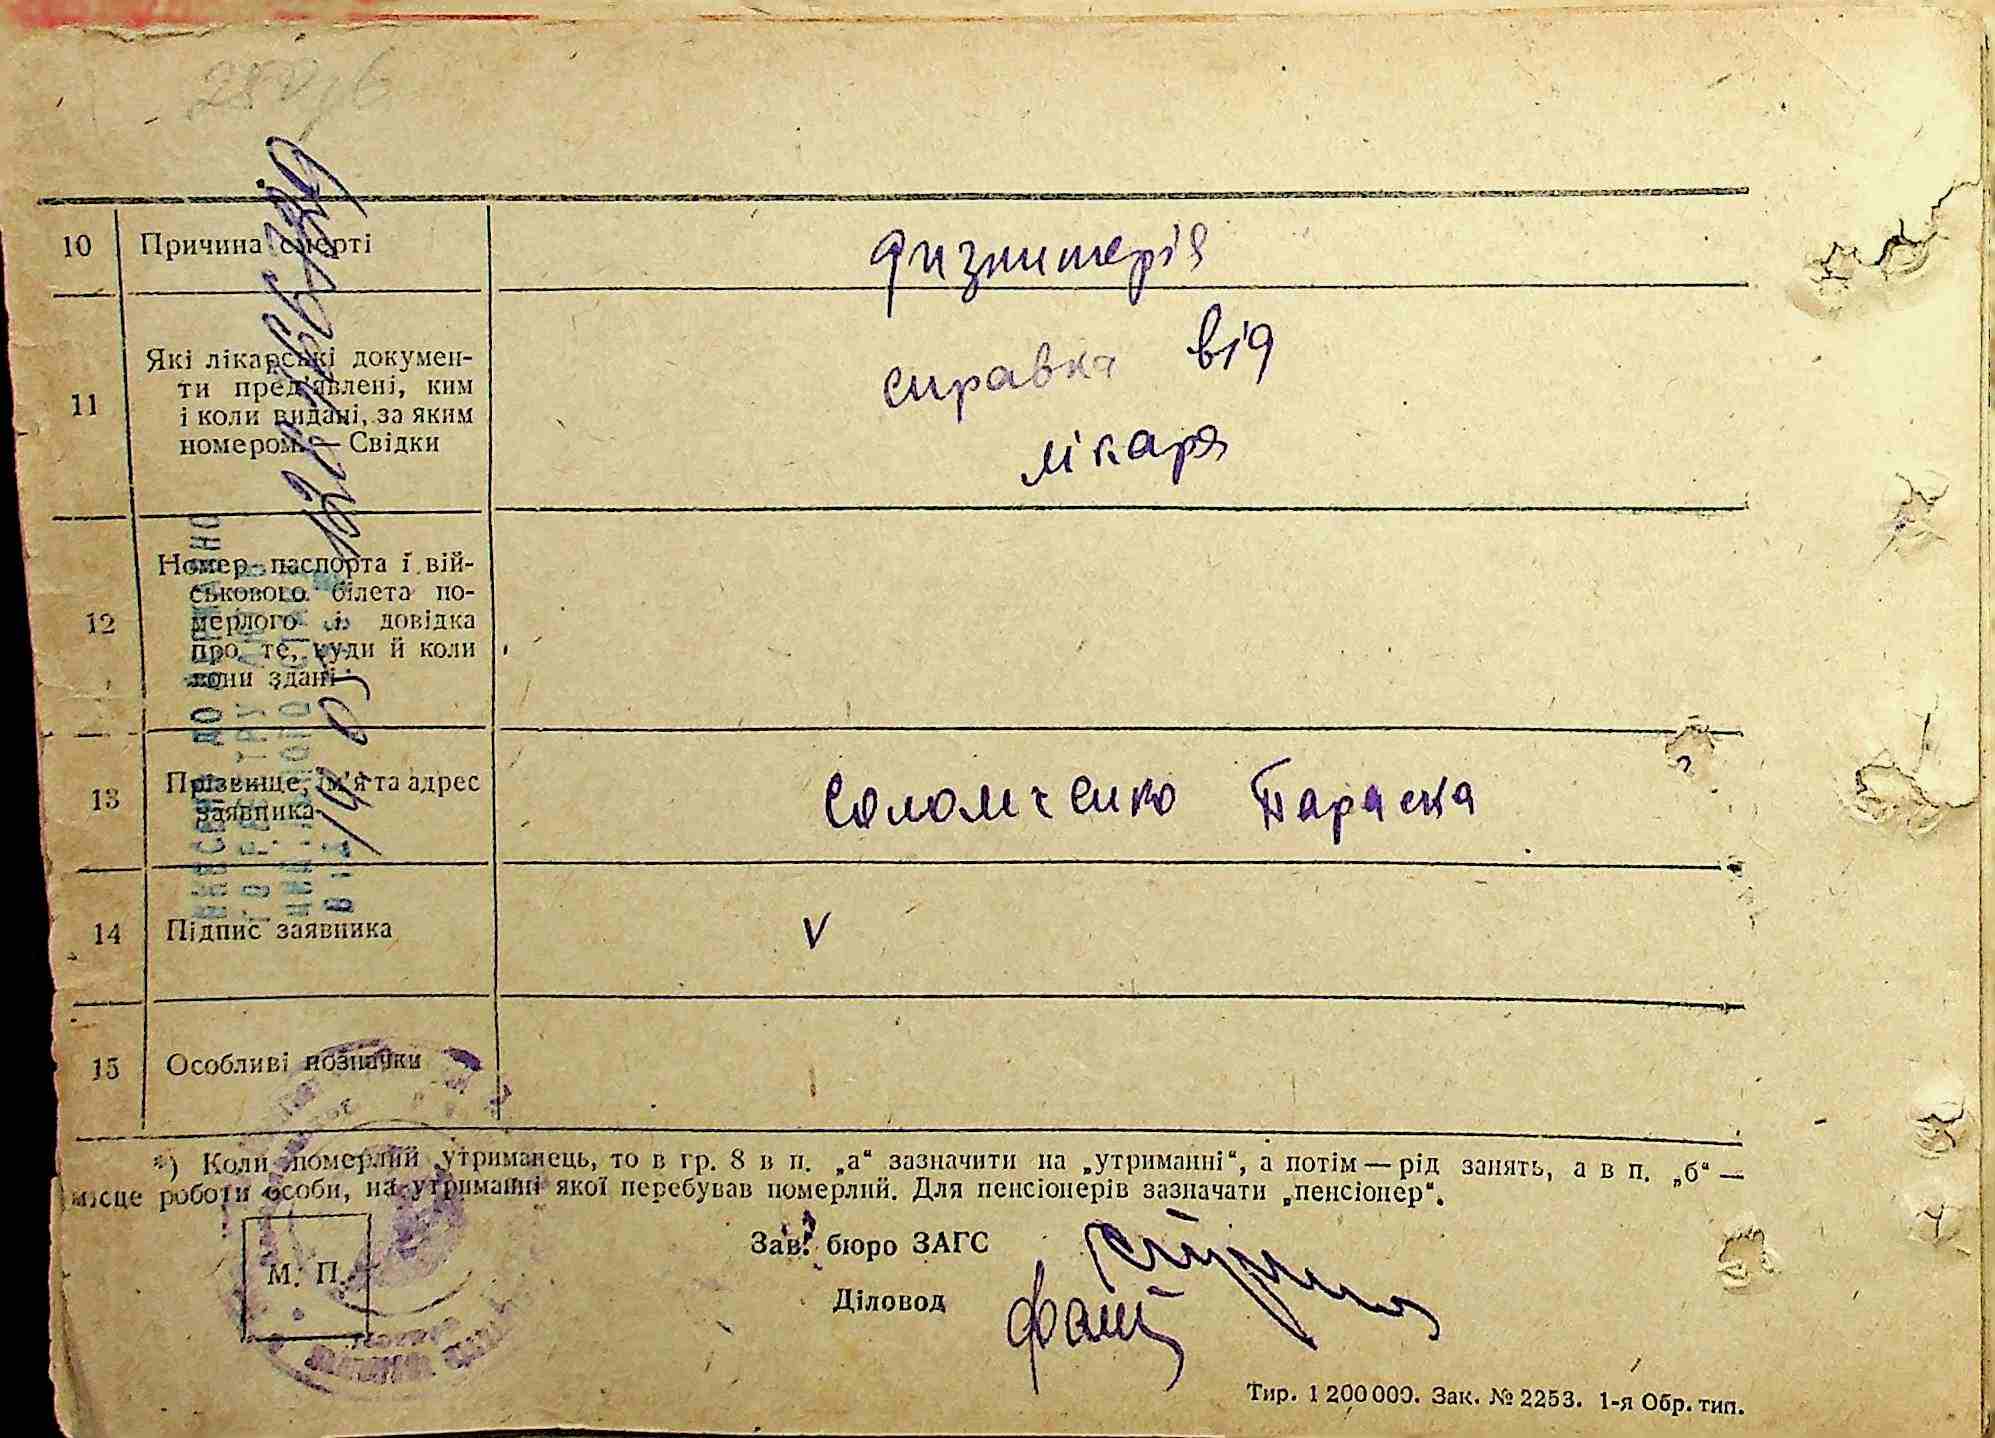 10 Причина смерті дизинтерія
11 Які лікарські докумен-
ти пред'явлені, ким
і коли видані, за яким
номером. — Свідки
справка від
лікаря
12 Номер паспорта і вій-
ськового білета по-
мерлого і довідка
про те, куди й коли
вони здані
13 Прізвище, ім'я та адрес
заявника
Соломченко Параска
14 Підпис заявника v
15 Особливі позначки
*) Коли померлий утриманець, то в гр. 8 в п. „а“ зазначити на „утриманні“, а потім — рід занять, а в п. „б“ —
місце роботи особи, на утриманні якої перебував померлий. Для пенсіонерів зазначати „пенсіонер“.
Зав. бюро ЗАГС
М. П.
Діловод
Тир. 1 200 000. Зак. № 2253. 1-я Обр. тип.